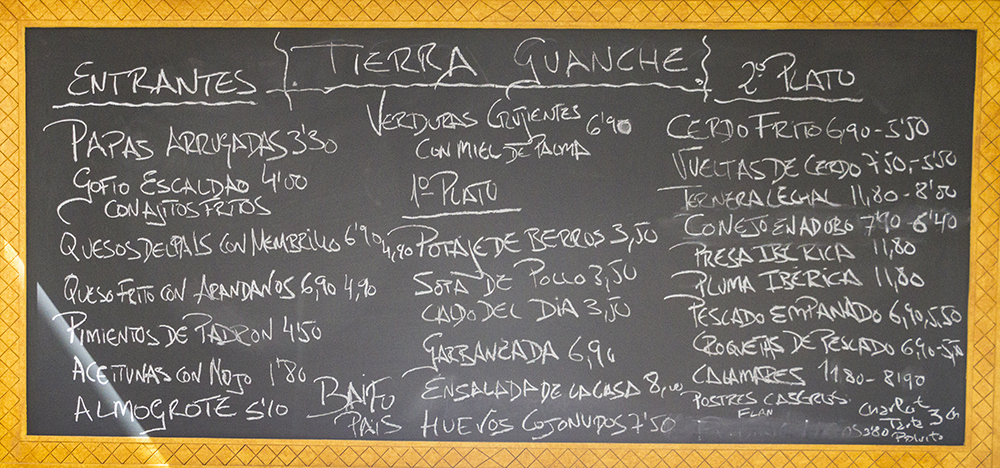 TIERRA GUANCHE
ENTRANTES
PAPAS ARRUGADAS 3'30
GOFIO ESCALDAO 4'00
CON AJITOS FRITOS
QUESOS DEL PAIS CON MEMBRILLO 6'90 4,90
QUESO FRITO CON ARANDANOS 6,90 4,90
PIMIENTOS DE PADRON 4'50
ACEITUNAS CON MOJO 1'80
ALMOGROTE 5'10
VERDURAS CRUJIENTES 6'90
CON MIEL DE PALMA
1º PLATO
POTAJE DE BERROS 3,50
SOPA DE POLLO 3,50
CALDO DEL DIA 3,50
GARBANZADA 6,90
ENSALADA DE LA CASA 8,00
HUEVOS COJONUDOS 7'50
BAIFO
PAIS
2º PLATO
CERDO FRITO 6,90-5'50
VUELTAS DE CERDO 7'50-5'50
TERNERA LECHAL 11,80-8'00
CONEJO EN ADOBO 7'90-6'40
PRESA IBÉRICA 11,80
PLUMA IBÉRICA 11,80
PESCADO EMPANADO 6,90,5,50
CROQUETAS DE PESCADO 6,90-5,50
CALAMARES 11,80-8'90
POSTRES CASEROS
FLAN